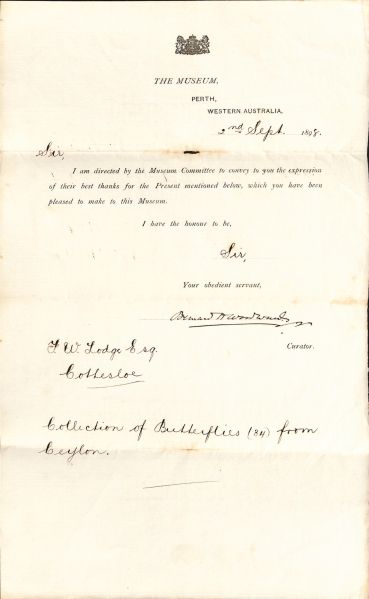 THE MUSEUM,
PERTH,
WESTERN AUSTRALIA.
2nd Sept. 1898.
Sir,
I am directed by the Museum Committee to convey to you the expression
of their best thanks for the Present mentioned below, which you have been
pleased to make to this Museum.
I have the honour to be,
Sir,
Your obedient servant,
Bernard H Woodward
Curator.
F. W. Lodge Esq.
Cottesloe
Collection of Butterflies (34) from
Ceylon.